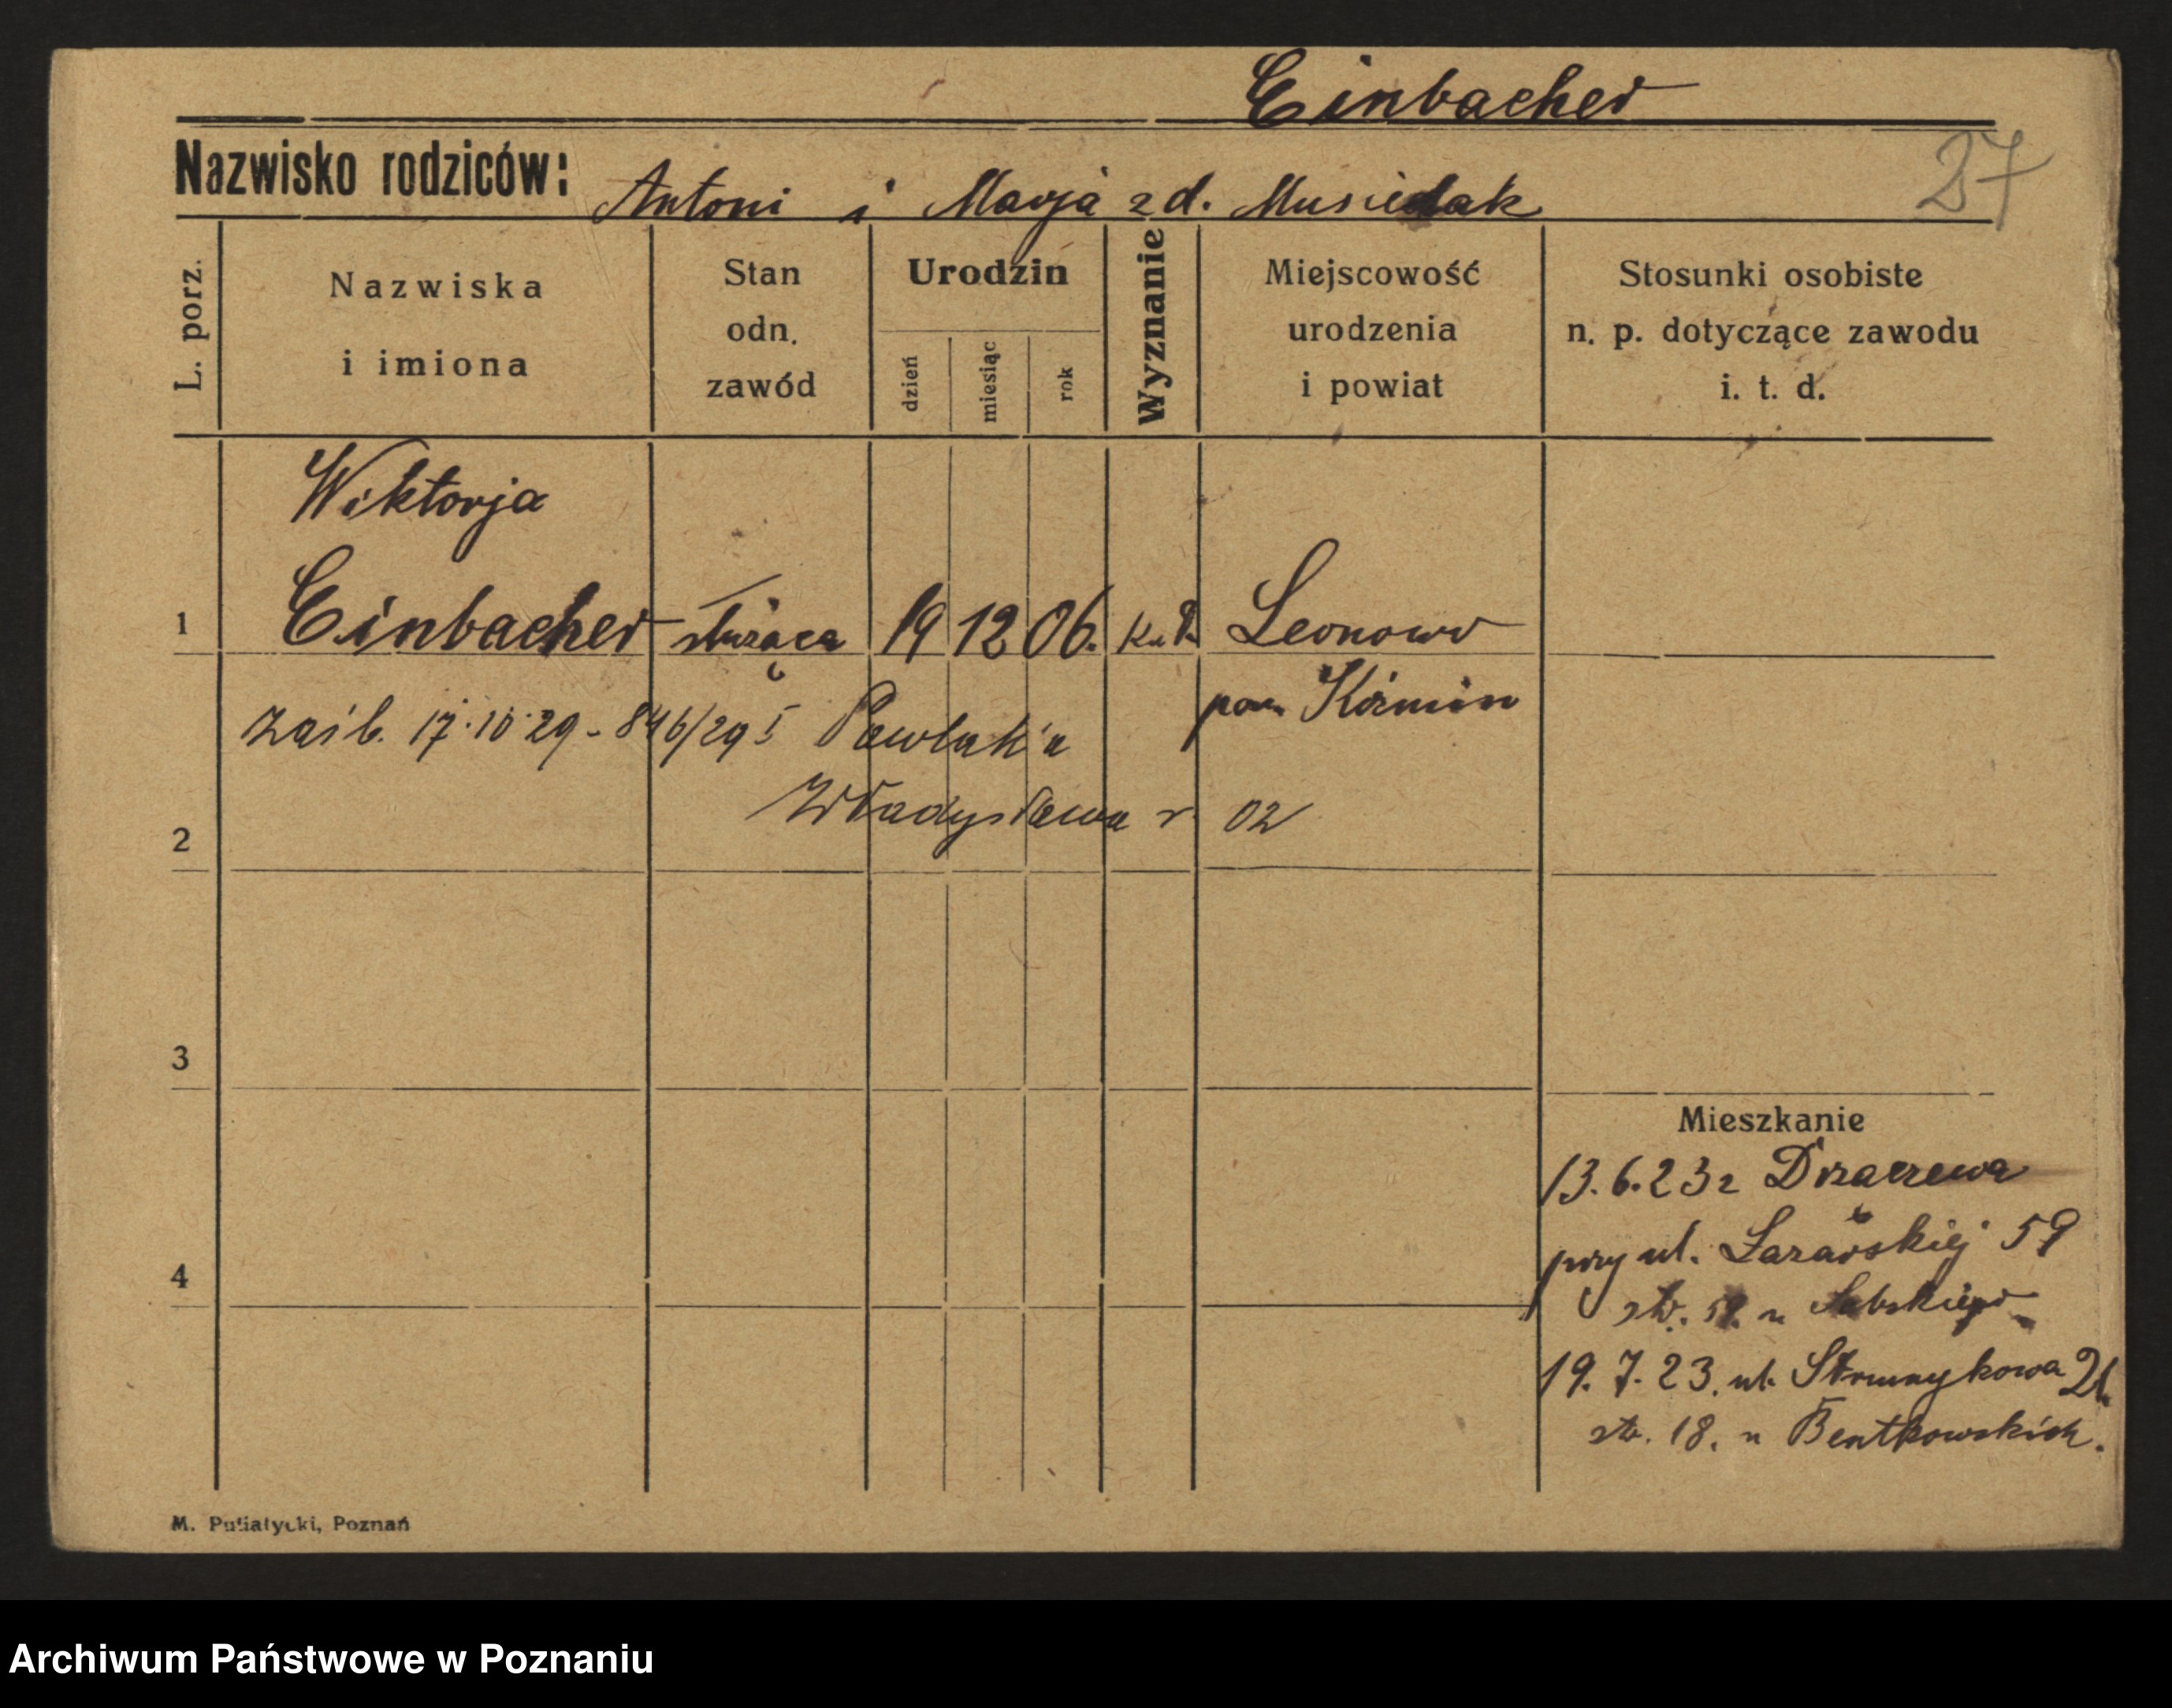 Einbacher
Nazwisko rodziców: Antoni i Marja z d. Musiedak
27
L. porz.
Nazwiska i imiona
Stan odn. zawód
Urodzin
dzień miesiąc rok
Wyznanie
Miejscowość urodzenia i powiat
Stosunki osobiste n. p. dotyczące zawodu i. t. d.
Wiktorja
1 Einbacher służąca 19 12 06. Leonowo
pow. Koźmin
zaśb. 17.10.29 - 846/29 Pawlak'a
Władysława r. 02
2
3
4
Mieszkanie
13.6.23 z Drzaczewa
przy ul. Łazarskiej 59
str. u
19.7.23. ul. Strumykowa
str. 18. u Bentkowskich.
M. Putiatycki, Poznań
Archiwum Państwowe w Poznaniu